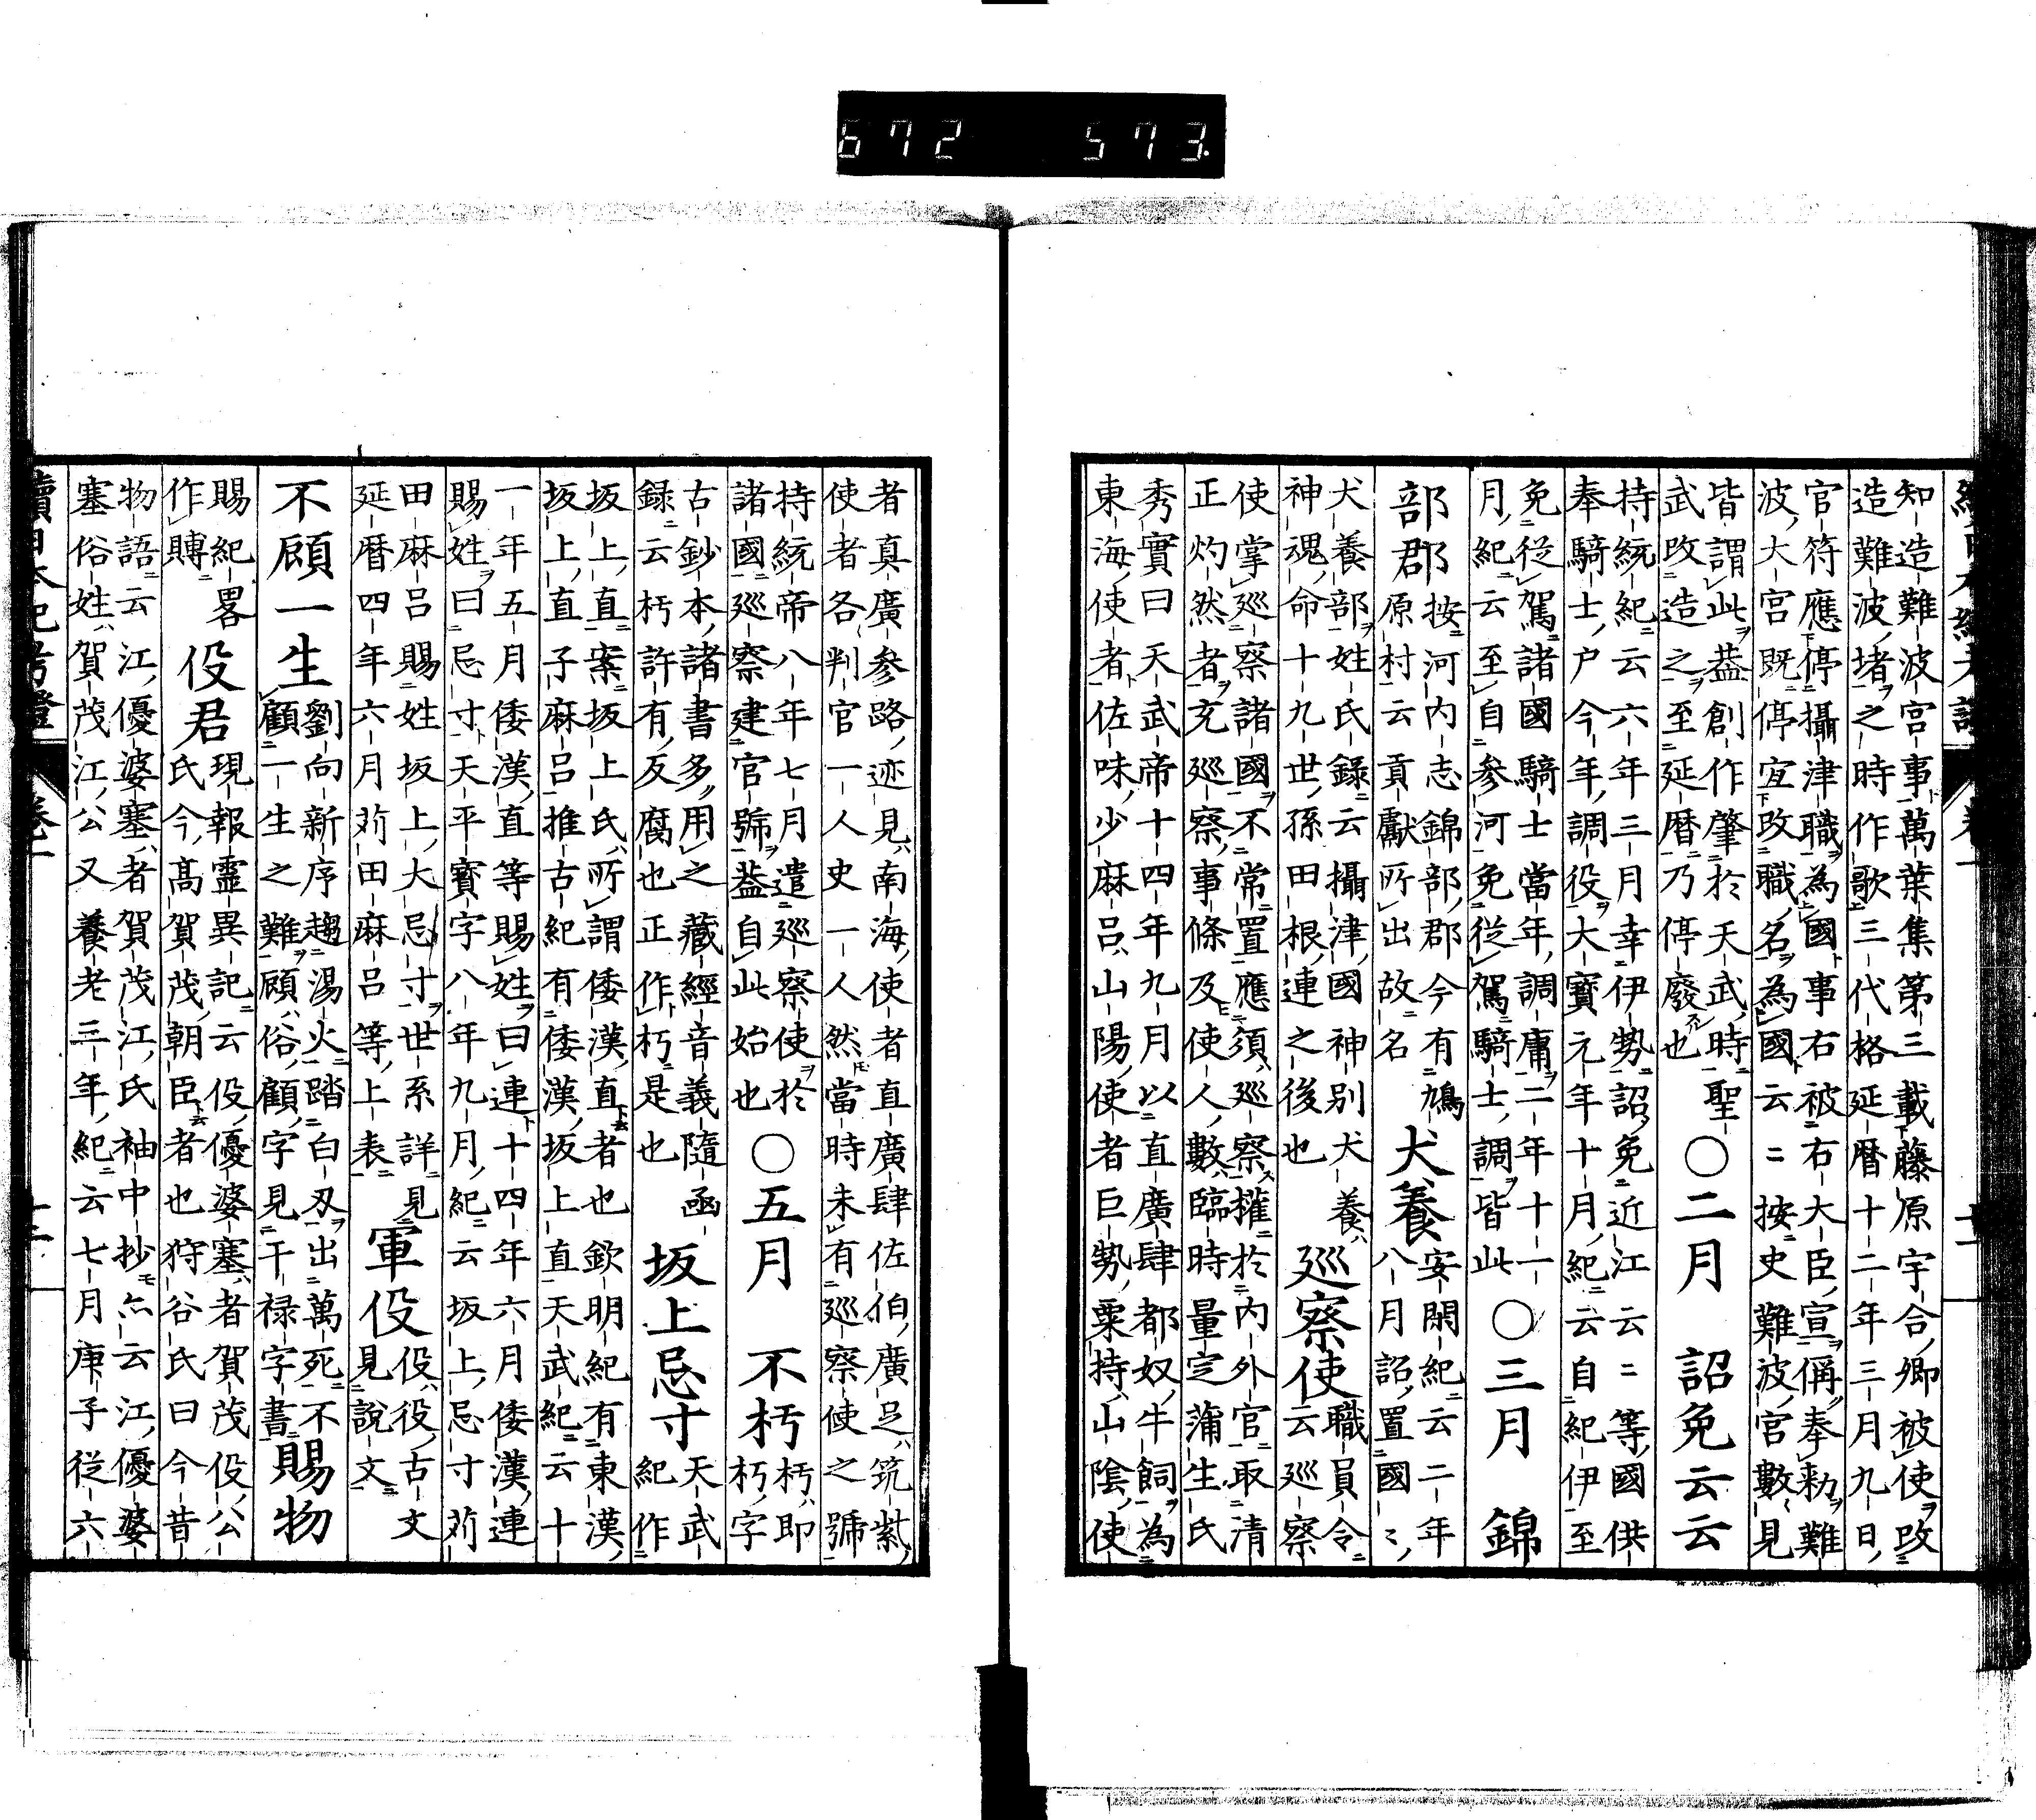 672 573.
知造難波宮事萬葉集第三載藤原宇合卿被使改
造難波堵之時作歌三代格延暦十二年三月九日
官符應停攝津職為國事右被右大臣宣偁奉勅難
波大宮既停宜改職名為國云二按史難波宮數見
皆謂此葢創作肇於天武時聖
武改造之至延暦乃停廢也
〇二月 詔免云云
持統紀云六年三月幸伊勢詔免近江云二等國供
奉騎士戸今年調役大寶元年十月紀云自紀伊至
免從駕諸國騎士當年調庸二年十一
月紀云至自參河免從駕騎士調皆此
〇三月 錦
部郡
按河内志錦部郡今有鳩
原村云貢獻所出故名
犬養
安閑紀云二年
八月詔置國〻
犬養部姓氏録云攝津國神別犬養
神魂命十九世孫田根連之後也
巡察使
職員令
云巡察
使掌巡察諸國不常置應須巡察擢於内外官取清
正灼然者充巡察事條及使人數臨時量定蒲生氏
秀實曰天武帝十四年九月以直廣肆都奴牛飼為
東海使者佐味少麻呂山陽使者巨勢粟持山陰使
者真廣參路迹見南海使者直廣肆佐伯廣足筑紫
使者各判官一人史一人然當時未有巡察使之號
持統帝八年七月遣巡察使於
諸國巡察建官號葢自此始也
〇五月 不朽
朽即
朽字
古鈔本諸書多用之藏經音義隨函
録云朽許有反腐也正作朽是也
坂上忌寸
天武
紀作
坂上直案坂上氏所謂倭漢直者也欽明紀有東漢
坂上直子麻呂推古紀有倭漢坂上直天武紀云十
一年五月倭漢直等賜姓曰連十四年六月倭漢連
賜姓曰忌寸天平寶字八年九月紀云坂上忌寸苅
田麻呂賜姓坂上大忌寸世系詳見
延暦四年六月苅田麻呂等上表
軍役
役役古文
見説文
不顧一生
劉向新序趨湯火踏白刃出萬死不
顧一生之難顧俗顧字見干禄字書
賜物
賜紀畧
作賻
役君
現報靈異記云役優婆塞者賀茂役公
氏今高賀茂朝臣者也狩谷氏曰今昔
物語云江優婆塞者賀茂江氏袖中抄亦云江優婆
塞俗姓賀茂江公又養老三年紀云七月庚子從六